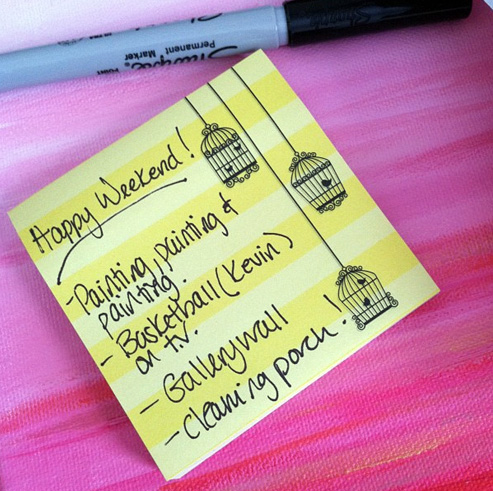 Sharpie.
Permanent
Marker
POINT
Happy Weekend!
- Painting, painting &
painting.
- Basketball (Kevin)
on tv.
- Gallery wall
- Cleaning porch!